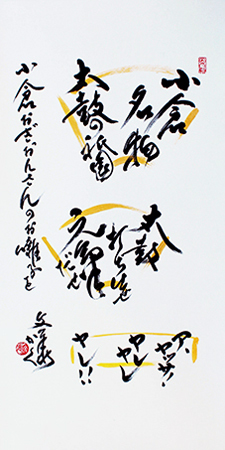 小倉
名物
太鼓の祇園
太鼓
打ち出せ
元気だせ
ア、ヤッサ!
ヤレ
ヤレ
ヤレ!!
小倉ぎおんさんのお囃子を